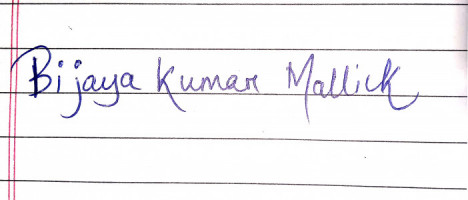 Bijaya Kumar Mallick